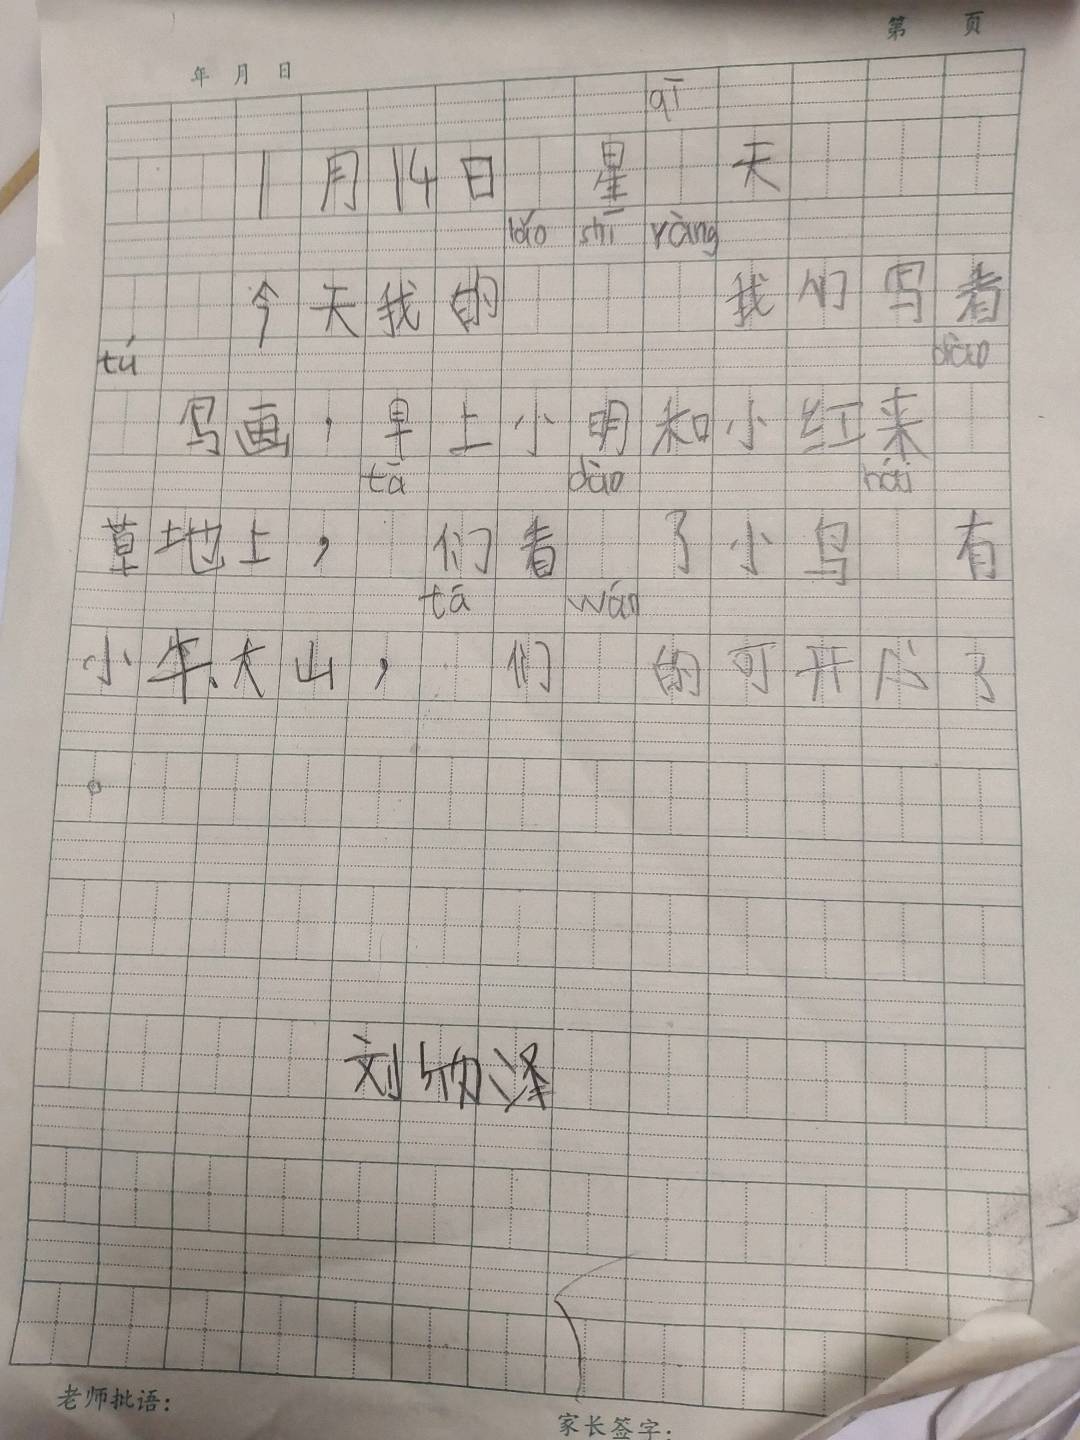 第 页
年 月 日
qī
1月14日 星 天
lǎo shī ràng
今天我的 我们写者
tú dào
写画，早上小明和小红来
tā dào hái
草地上， 们看 了小鸟 有
tā wán
小牛、大山， 们 的可开心了
刘 泽
老师批语：
家长签字：